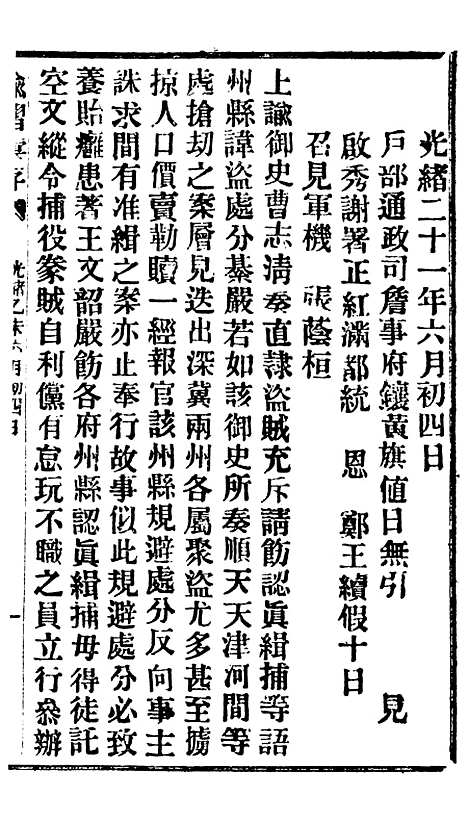 光緒二十一年六月初四日
戶部通政司詹事府鑲黃旗值日無引　見
啟秀謝署正紅滿都統　恩　鄭王續假十日
召見軍機　張蔭桓
上諭御史曹志清奏直隸盜賊充斥請飭認眞緝捕等語
州縣諱盜處分綦嚴若如該御史所奏順天天津河間等
處搶劫之案層見迭出深冀兩州各屬聚盜尤多甚至擄
掠人口價賣勒贖一經報官該州縣規避處分反向事主
誅求間有准緝之案亦止奉行故事似此規避處分必致
養貽癰患著王文韶嚴飭各府州縣認眞緝捕毋得徒託
空文縱令捕役豢賊自利儻有怠玩不職之員立行叅辦
光緒乙未六月初四日
一